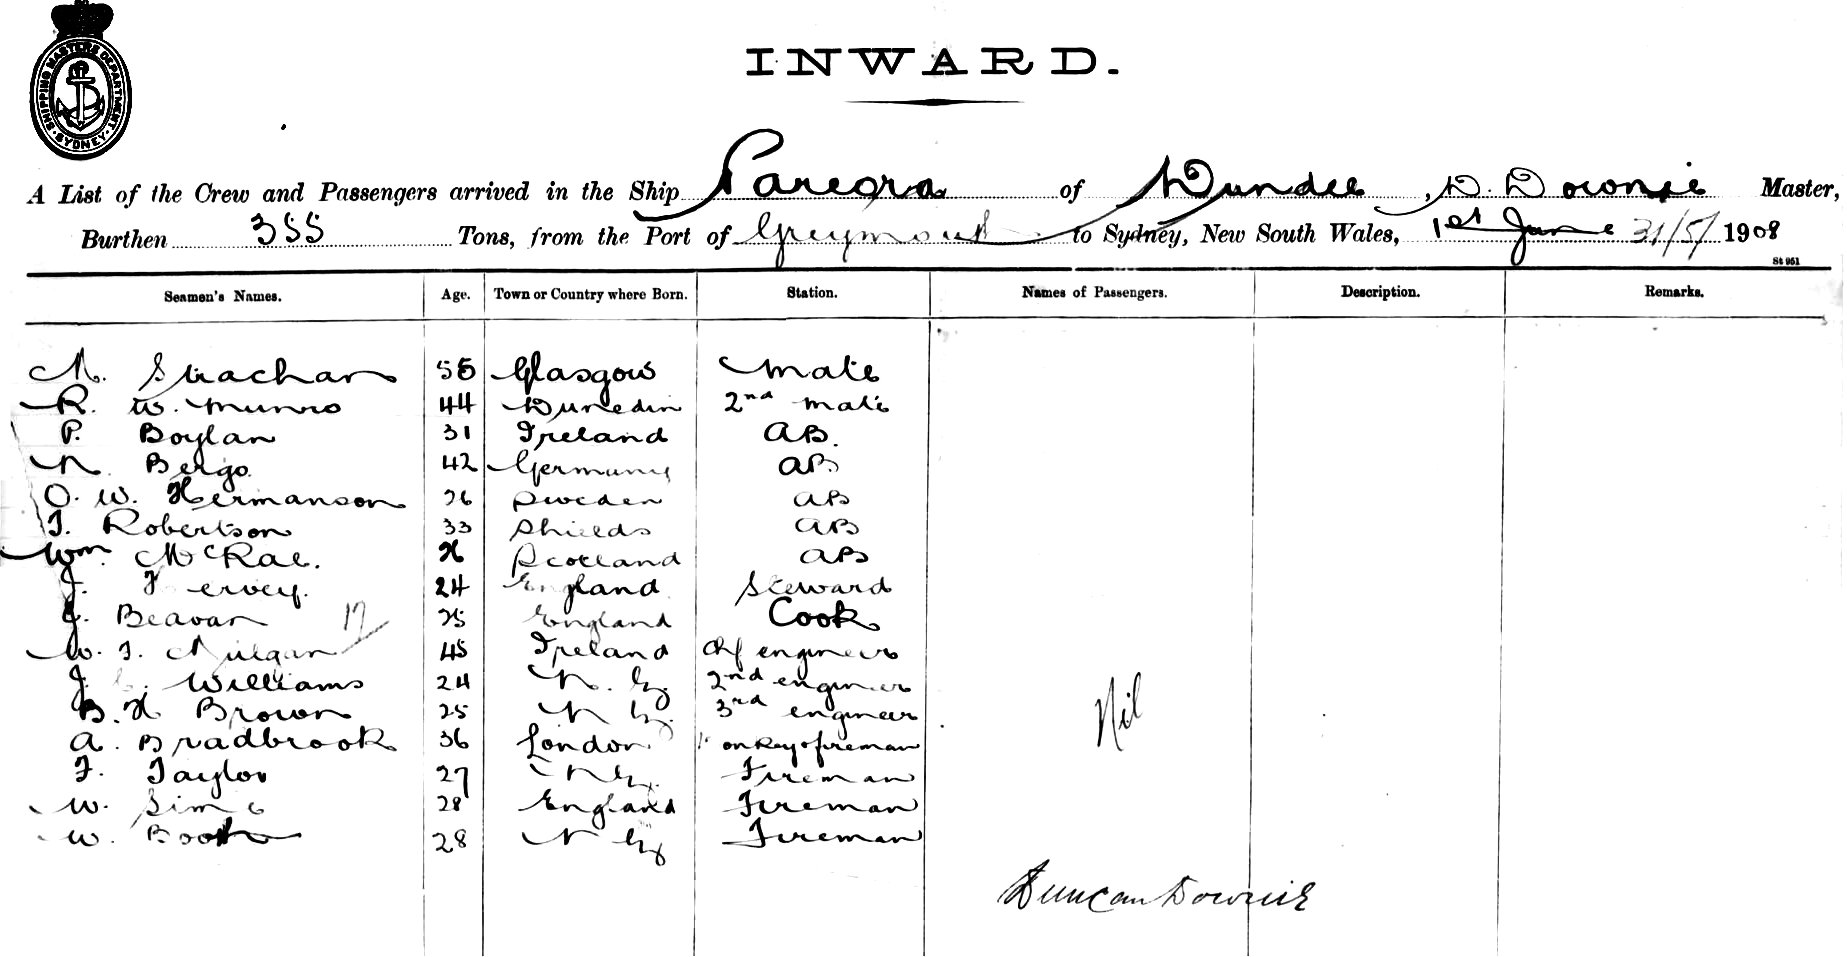 SHIPPING MASTERS DEPARTMENT · SYDNEY ·
INWARD.
A List of the Crew and Passengers arrived in the Ship Pareora of Dundee, D. Downie Master,
Burthen 355 Tons, from the Port of Greymouth to Sydney, New South Wales, 1st June 31/5/ 1908
St 951
Seamen's Names. Age. Town or Country where Born. Station. Names of Passengers. Description. Remarks.
M. Strachan Glasgow Mate
R. W. Munro 44 Dunedin 2nd Mate
P. Boylan 31 Ireland AB.
N. Bergs 42 Germany AB
O. W. Hermanson 26 Sweden AB
T. Robertson 33 Shields AB
Wm. McRae. Scotland AB
J. Hervey. 24 England Steward
J. Beavan 17 25 England Cook
W. T. 45 Ireland Chf engineer
J. Williams 24 N. Z. 2nd engineer
B. H Brown 25 N Z. 3rd engineer
A. Bradbrook 36 London Donkey & fireman
F. Taylor 27 N Z. Fireman
W. Sims 28 England Fireman
W. Booth 28 N Z Fireman
Nil
Duncan Downie